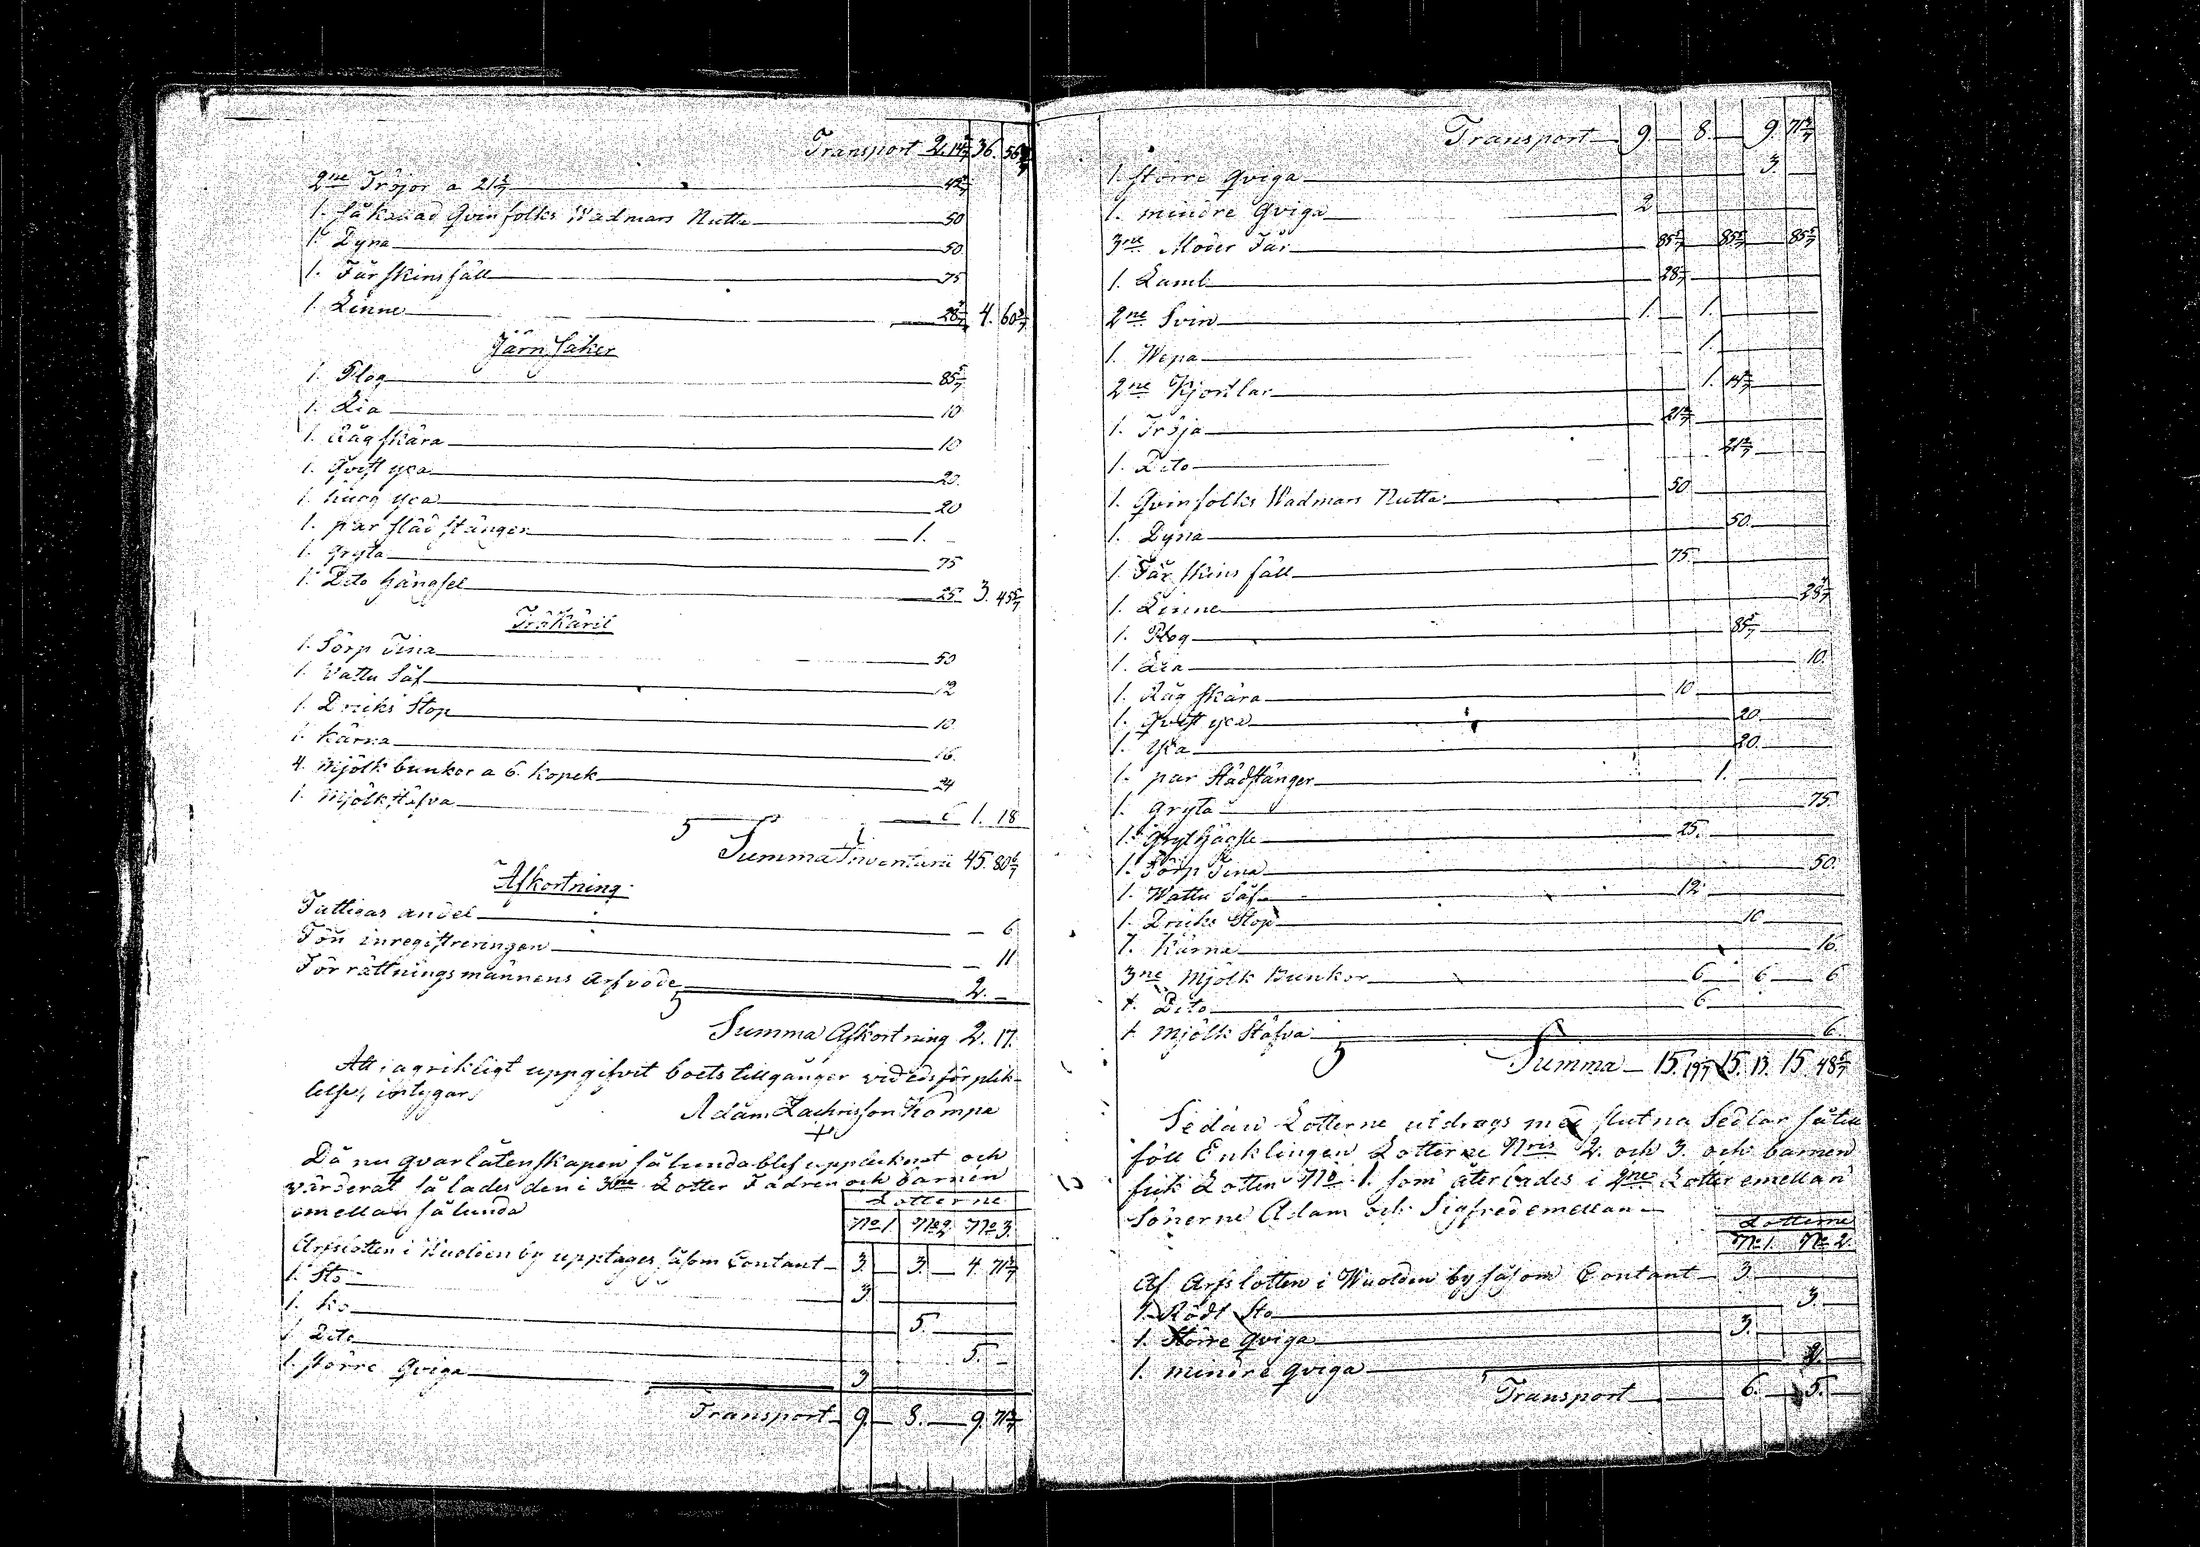 Transport 2. 14 2/7 36. 56
2ne Tröjor a 21 3/7 42 6/7
1. Qvinfolks Wadmars Nutte 50
1. Dyna 50
1. Fårskinsfäll 75
1. Linne 28 4/7 4. 60 3/7
Järn Saker
1. Plog 85 5/7
1. Lia 10
1. Rågskära 10
1. Qvist yxa 20.
1. hugg yxa 20
1. par stådstänger 1. -
1. gryta 75
1. Dito hängsel 25 3. 45 5/7
Träkäril
1. Sörp Tina 50
1. Vattu Såf 12
1. Driks Stop 10
1. kärna 16.
4. Mjölk bunkor a 6. kopek 24
1. Mjölkstäfva 6 1. 18
Summa Inventarii 45. 80 6/7
Afkortning
Fattigas andel — 6
Fön inregistreringen — 11
Förrättningsmännens arfvode 2. —
Summa Afkortning 2. 17.
Att jag riktigt uppgifvit boets tillgångar vid edsförplik-
telse, intygar,
Adam Zachrisson Kämpe
+
Då nu qvarlåtenskapen sålunda blef upptecknat och
värderat så lades den i 3ne Lotter Fadren och barnen
emellan sålunda
Lotterne
No 1. No 2. No 3.
Arfslotten i Wuolden by upptages såsom Contant 3. — 3. — 4. 71 3/7
1. Sto 3.
1. ko 5.
1. Dito 5. —
1. större qviga 3
Transport 9. — 8. — 9. 71 3/7
Transport 9. — 8. — 9. 71 3/7
1. större qviga 3.
1. mindre qviga 2
3ne Moder Får 85 5/7 85 5/7 85 5/7
1. Lamb 28 4/7
2ne Svin 1. 1.
1. Wepa 1.
2ne Kjortlar 1. 14 2/7
1. Tröja 21 3/7
1. Dito 21 3/7
1. Qvinfolks Wadmars Nutta 50
1. Dyna 50.
1. Fårskins fäll 75.
1. Linne 28 4/7
1. Plog 85 5/7
1. Lia 10.
1. Råg skära 10
1. Qvist yxa 20
1. Yxa 20.
1. par Stådstänger 1.
1. gryta 75.
1. Gryt 25.
1. Sörp Tina 50.
1. Wattu Såf 12
1. Dricks Stop 10
1. Kärna 16.
3ne Mjölk Bunkor 6 6 6
1. Dito 6
1. Mjölk Stäfva 6.
Summa 15. 19 15. 13. 15. 48
Sedan Lotterne utdrags med slutna Sedlar såtu
föll Enklingen Lotterne Nris 2. och 3. och barnen
fick Lotten No 1. som återlades i 2ne Lotter emellan
Sönerne Adam och Sigfred emellan
Lotterne
No 1. No 2.
Af Arfslotten i Wuolden by såsom Contant 3.
1. Rödt Sto 3.
1. Större qviga 3.
1. mindre qviga 2
Transport 6. — 5. —